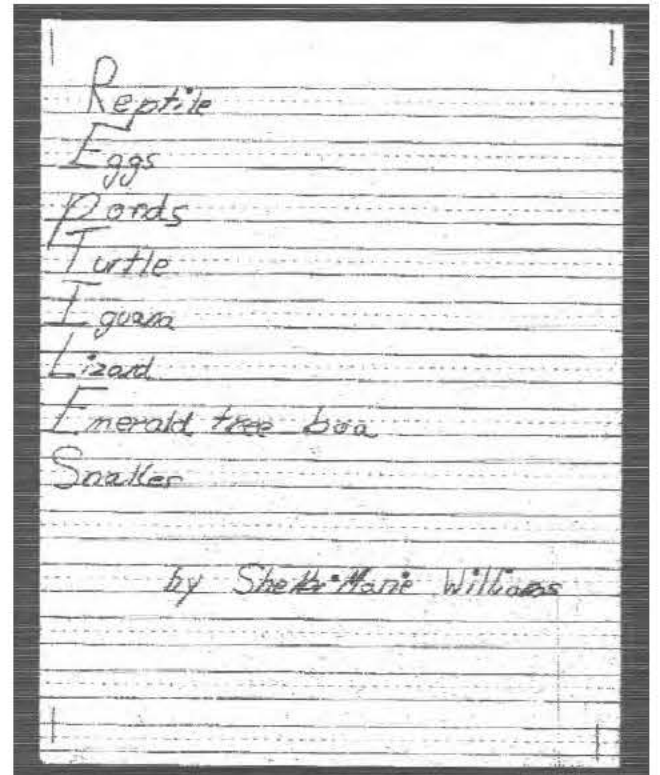 Reptile
Eggs
Ponds
Turtle
Iguana
Lizard
Emerald tree boa
Snakes
by Marie Williams